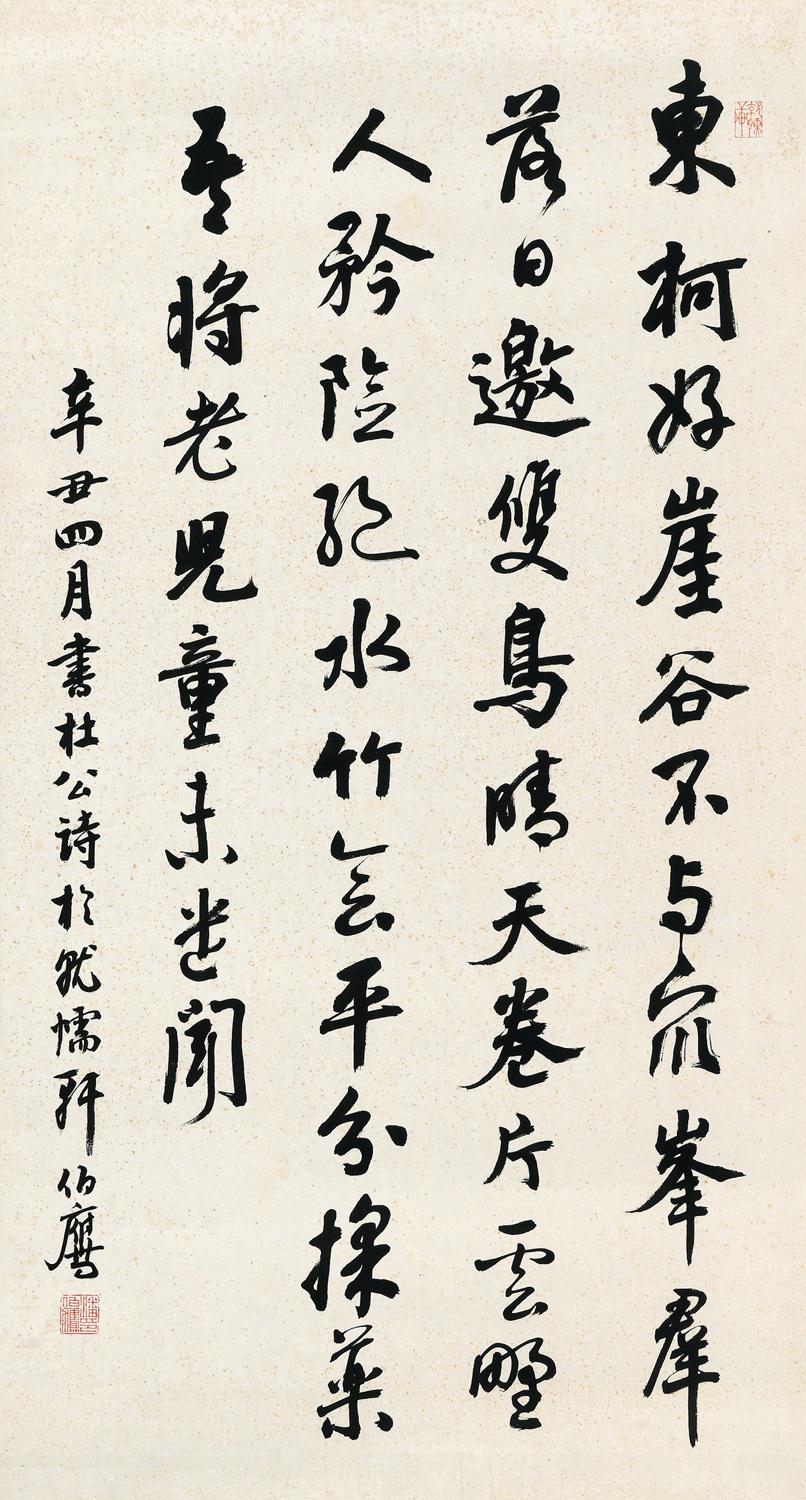 就懦軒
東柯好崖谷不与眾峯羣
落日邀雙鳥晴天卷片雲野
人矜險絕水竹会平分採藥
吾將老兒童未遣聞
辛丑四月書杜公詩於就懦軒伯鷹
潘印伯鷹